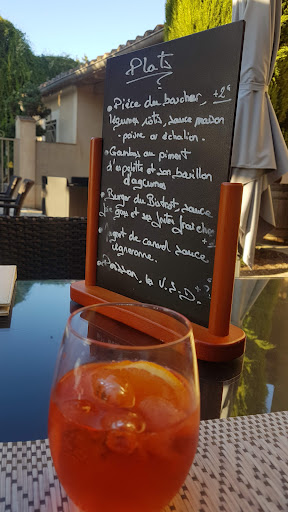 Plats
Pièce du boucher, +2€
légumes rôtis, sauce maison
poivre ou échalion.
Gambas au piment
d'espelette et son bouillon
d'agrumes
Burger du Bistrot, sauce
et ses frites fraîches
de canard sauce
vigneronne.
Poisson. V.S.D